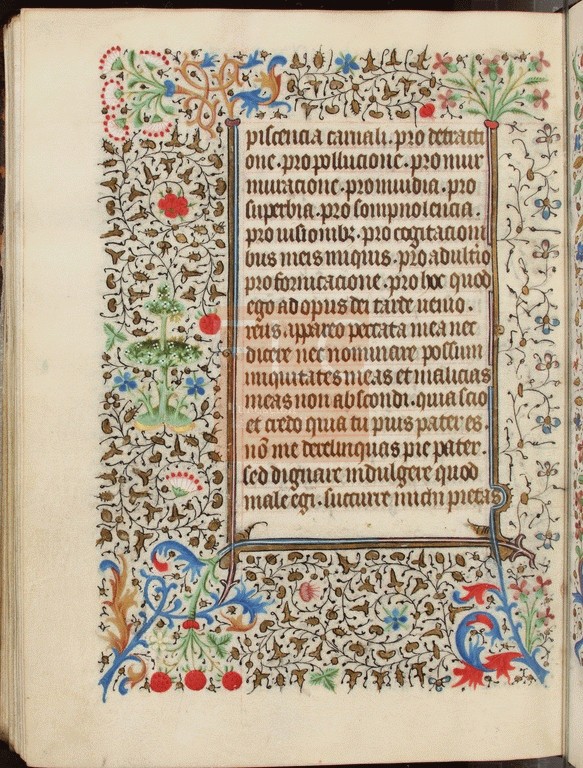 piscencia carnali. pro detracti
one. pro pollucione. pro mur
muracione. pro inuidia. pro
superbia. pro sompnolencia.
pro uisionibz. pro cogitacioni
bus meis iniquis. pro adultio
pro fornicacione. pro hoc quod
ego ad opus dei tarde uenio.
reus. appareo peccata mea nec
dicere nec nominare possum
iniquitates meas et malicias
meas non abscondi. quia scio
et credo quia tu pius pater es.
nō me derelinquas pie pater.
sed dignare indulgere quod
male egi. succurre michi pietas